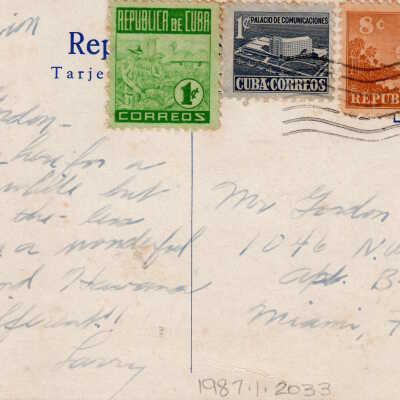 REPUBLICA DE CUBA
1¢
CORREOS
1¢ PALACIO DE COMUNICACIONES
CUBA·CORREOS
8¢
REPUB
Rep
Tarje
for a
while but
the less
a wonderful
Havana
fferent!!
Larry
Mr Gordon
1046 N.W
Apt. B
Miami, F
1987.1.2033